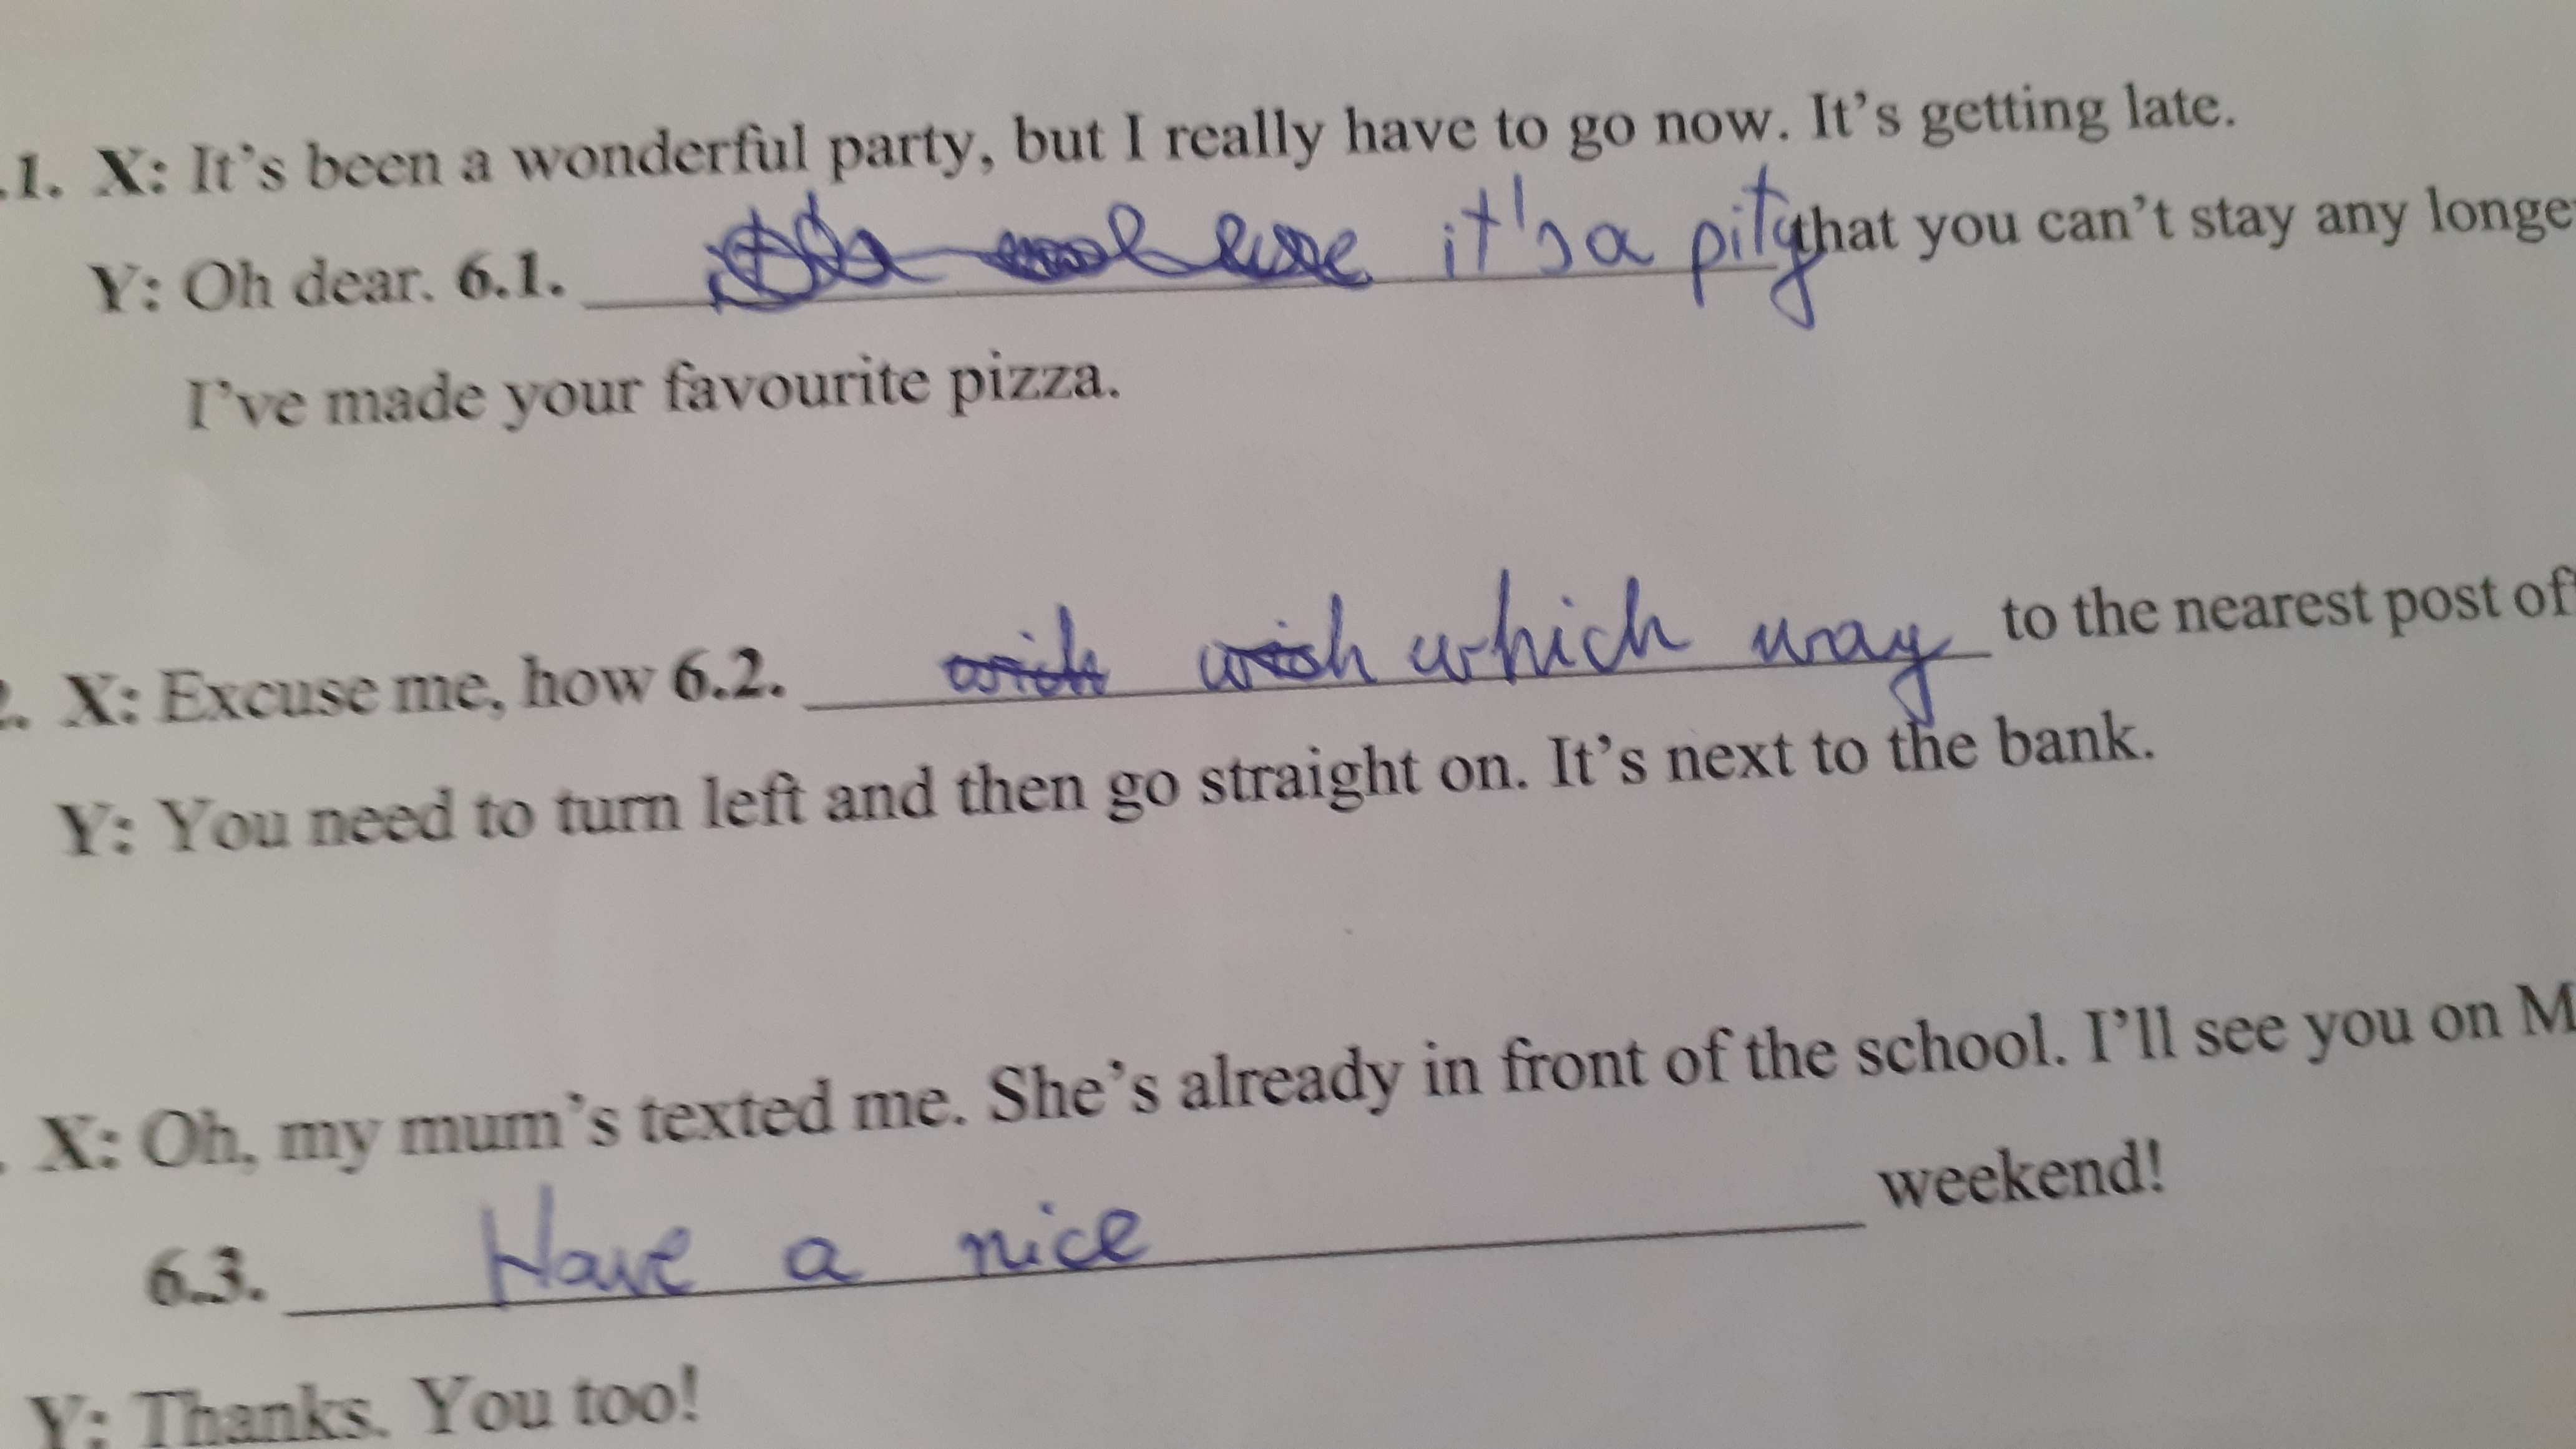 .1. X: It's been a wonderful party, but I really have to go now. It's getting late.
Y: Oh dear. 6.1. it's a pity that you can't stay any longe
I've made your favourite pizza.
. X: Excuse me, how 6.2. which way to the nearest post of
Y: You need to turn left and then go straight on. It's next to the bank.
. X: Oh, my mum's texted me. She's already in front of the school. I'll see you on M
6.3. Have a nice weekend!
Y: Thanks. You too!